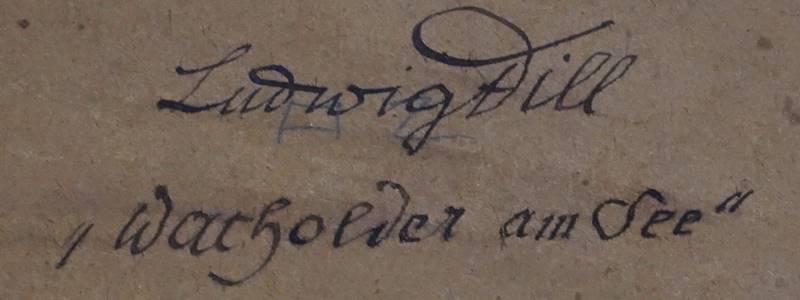 Ludwig Dill
„Wacholder am See“